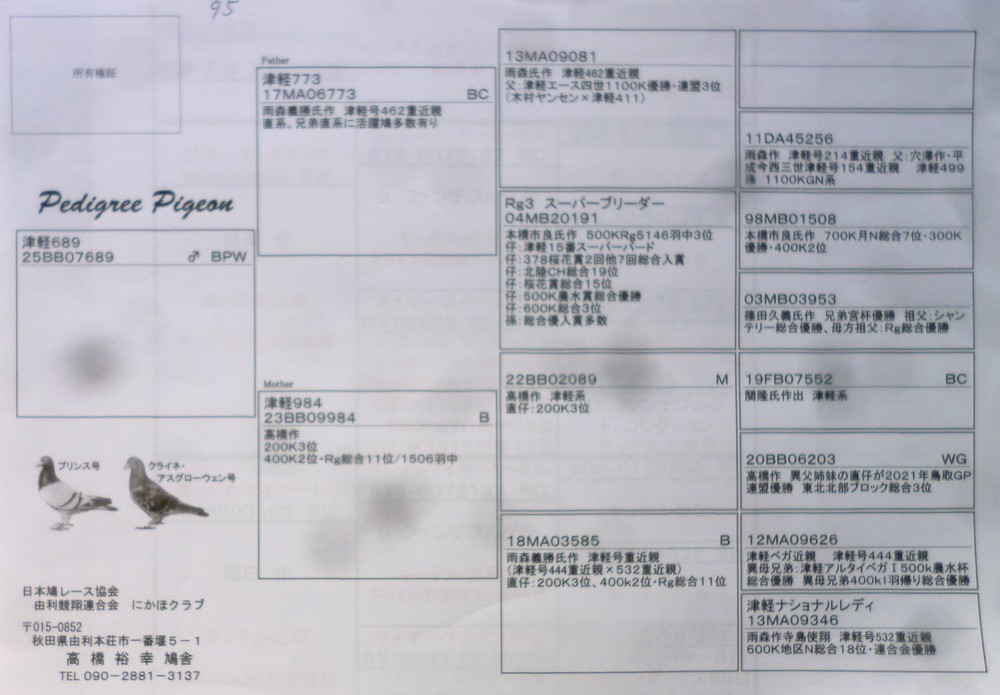 95
所有権証
Pedigree Pigeon
津軽689
25BB07689 ♂ BPW
プリンス号
クライネ・
アスグローウェン号
日本鳩レース協会
由利競翔連合会 にかほクラブ
〒015-0852
秋田県由利本荘市一番堰５－１
高橋裕幸鳩舎
TEL 090-2881-3137
Father
津軽773
17MA06773 BC
雨森義勝氏作 津軽号462重近親
直系、兄弟直系に活躍鳩多数有り
Mother
津軽984
23BB09984 B
高橋作
200K3位
400K2位・Rg総合11位/1506羽中
13MA09081
雨森氏作 津軽462重近親
父：津軽エース四世1100K優勝・連盟3位
（木村ヤンセン×津軽411）
Rg3 スーパーブリーダー
04MB20191
本橋市良氏作 500KRg5146羽中3位
仔：津軽15番スーパーバード
仔：378桜花賞2回他7回総合入賞
仔：北陸CH総合19位
仔：桜花賞総合15位
仔：500K農水賞総合優勝
仔：600K総合3位
孫：総合優入賞多数
22BB02089 M
高橋作 津軽系
直仔：200K3位
18MA03585 B
雨森義勝氏作 津軽号重近親
（津軽号444重近親×532重近親）
直仔：200K3位、400k2位・Rg総合11位
11DA45256
雨森作 津軽号214重近親 父：穴澤作・平
成今西三世津軽号154重近親 津軽499
孫 1100KGN系
98MB01508
本橋市良氏作 700K月N総合7位・300K
優勝・400K2位
03MB03953
篠田久義氏作 兄弟宮杯優勝 祖父：シャン
テリー総合優勝、母方祖父：Rg総合優勝
19FB07552 BC
関隆氏作出 津軽系
20BB06203 WG
高橋作 異父姉妹の直仔が2021年鳥取GP
連盟優勝 東北北部ブロック総合3位
12MA09626
津軽ベガ近親 津軽号444重近親
異母兄弟：津軽アルタイベガⅠ500k農水杯
総合優勝 異母兄弟400k1羽帰り総合優勝
津軽ナショナルレディ
13MA09346
雨森作寺島使翔 津軽号532重近親
600K地区N総合18位・連合会優勝